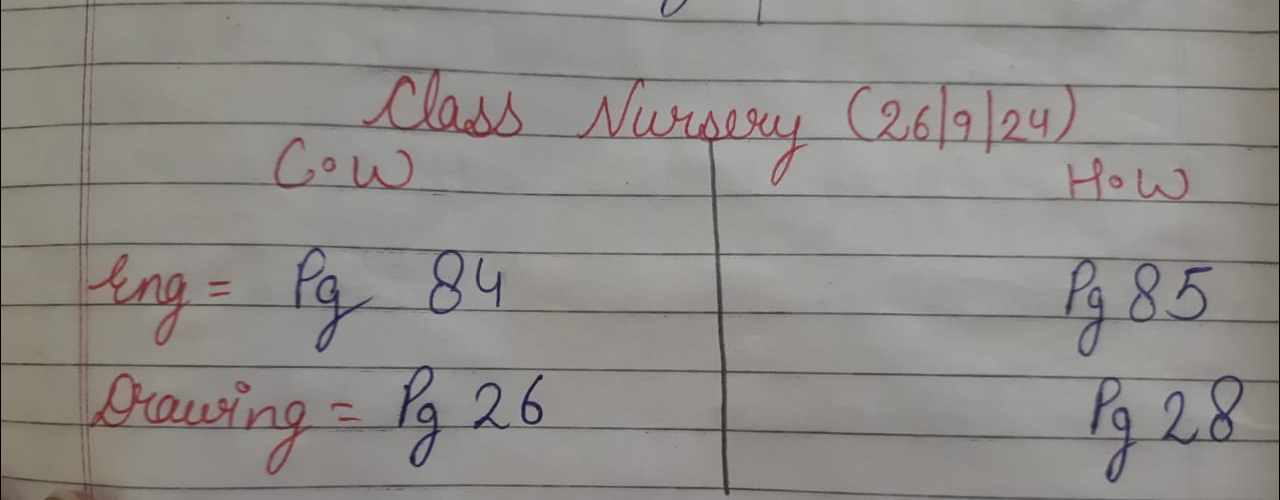 Class Nursery (26/9/24)
C.W H.W
Eng = Pg 84 Pg 85
Drawing = Pg 26 Pg 28